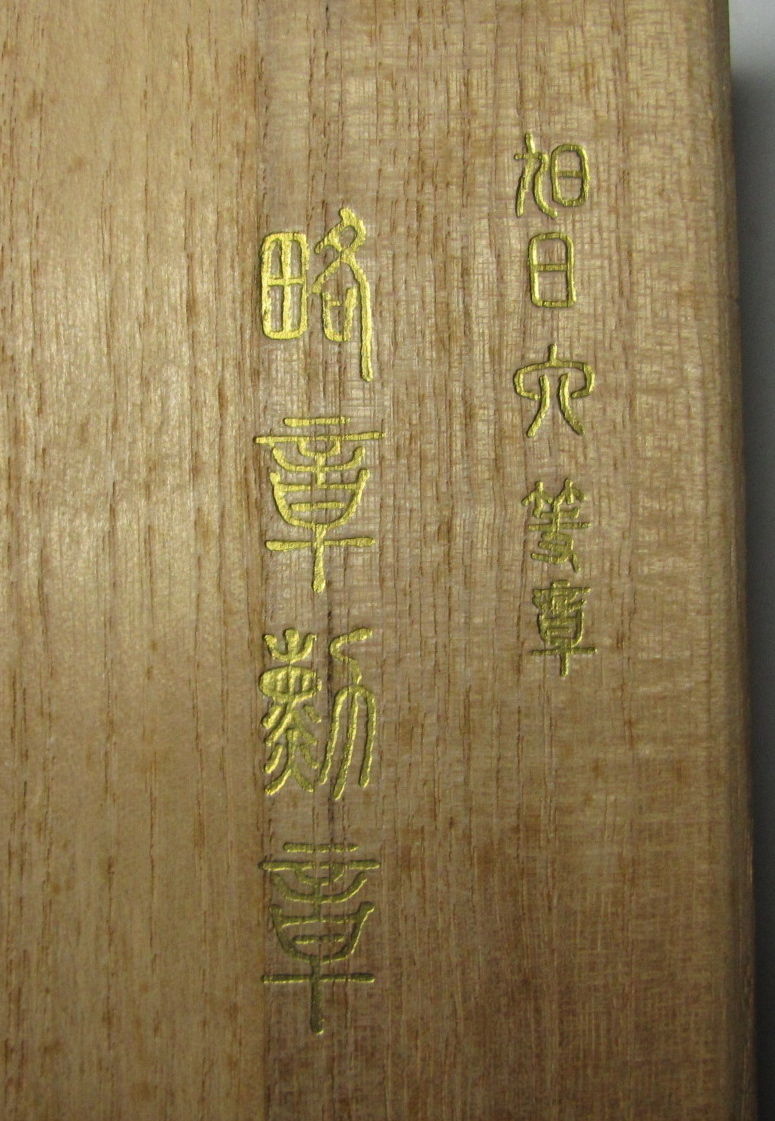 旭日六等章
略章勲章